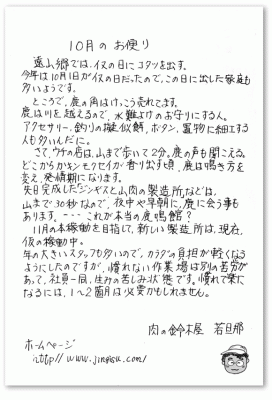 10月のお便り
遠山郷では、イヌの日にコタツを出す。
今年は10月1日がイヌの日だったので、この日に出した家庭も
多いようです。
ところで、鹿の角はけっこう売れてます。
鹿は川を越えるので、水難よけのお守りにする人。
アクセサリー、釣りの擬似餌、ボタン、置物に細工する
人も多いんだに。
さて、ウチの店は、山まで歩いて2分。鹿の声も聞こえる。
どこからかキンモクセイが香り出す頃、鹿は鳴き方を
変え、発情期になります。
先日完成したジンギスと山肉の製造所などは、
山まで30秒なので、夜中や早朝に、鹿に会う事も
あります。---これが本当の鹿鳴館?
11月の本稼動を目指して、新しい製造所は、現在、
仮の稼動中。
年の大きいスタッフも多いので、カラダの負担が軽くなる
ようにしたのですが、慣れない作業場は別の苦労が
あって、社員一同、生みの苦しみ状態です。慣れて楽に
なるには、1〜2箇月は必要かもしれません。
肉の鈴木屋 若旦那
ホームページ
http://www.jingisu.com/